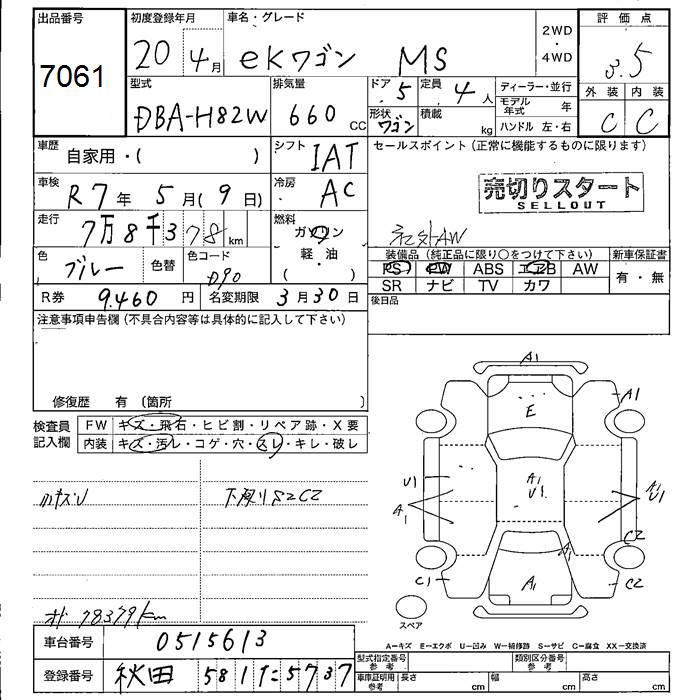 出品番号 初度登録年月 車名・グレード 評価点
7061 20年4月 eKワゴン MS 2WD・4WD 3.5
型式 排気量 ドア 5 定員 4人 ディーラー・並行 外装 内装
DBA-H82W 660cc 形状 ワゴン 積載 kg モデル年式 年 C C
ハンドル 左・右
車歴 自家用・( ) シフト IAT セールスポイント(正常に機能するものに限ります)
車検 R7年5月(9日) 冷房 AC 売切りスタート
SELLOUT
走行 7万8千378km 燃料 ガソリン
軽・油
( )
社外AW
色 ブルー 色替 色コード D90 装備品(純正品に限り○をつけて下さい) 新車保証書
PS PW ABS エアB AW 有・無
R券 9.460円 名変期限 3月30日 SR ナビ TV カワ
注意事項申告欄(不具合内容等は具体的に記入して下さい) 後日品
修復歴 有(箇所 )
検査員記入欄 FW キズ・飛石・ヒビ割・リペア跡・X要
内装 キズ・汚レ・コゲ・穴・スレ・キレ・破レ
A1
A1
E
U1
A1
U1
A1
U1
A1
C2
A1
C1
A1
C2
下廻りS2C2
スペア
オド 78379km
A-キズ E-エクボ U-凹み W-補修跡 S-サビ C-腐食 XX-交換済
車台番号 0515613
型式指定番号 参考 類別区分番号 参考
登録番号 秋田 581 た 5737
車庫証明用 参考 長さ cm 幅 cm 高さ cm